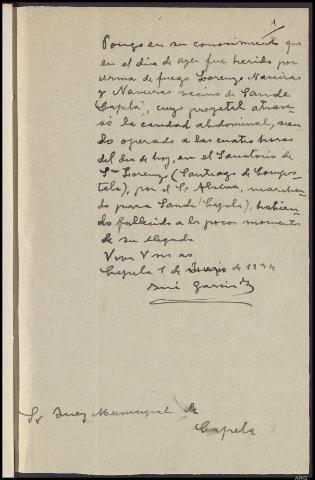 Pongo en su conocimiento que
en el día de ayer fue herido por
arma de fuego Lorenzo
y vecino de Lande
Capela, cuyo proyetil atrave-
só la cavidad abdominal, sien-
do operado a las cuatro horas
del dia de hoy, en el Sanatorio de
Sn Lorenzo (Santiago de Compos-
tela), por el Sr marchan-
do para Lande (Capela), habien-
do fallecido a los pocos momentos
de su llegada
Viva V ms as
Capela 1 de de 1934
José Garcia
Sr Juez Municipal de
Capela
ARG